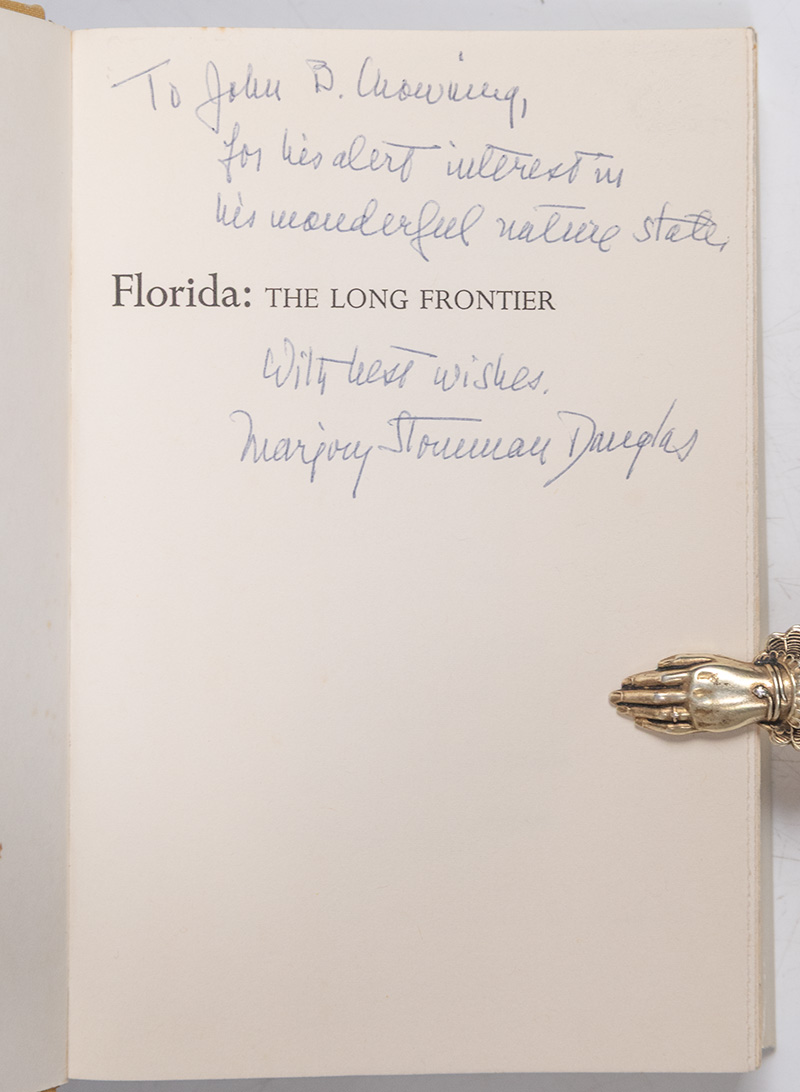 To John B. Chowning,
for his alert interest in
his wonderful nature state,
Florida: THE LONG FRONTIER
With best wishes.
Marjory Stoneman Douglas